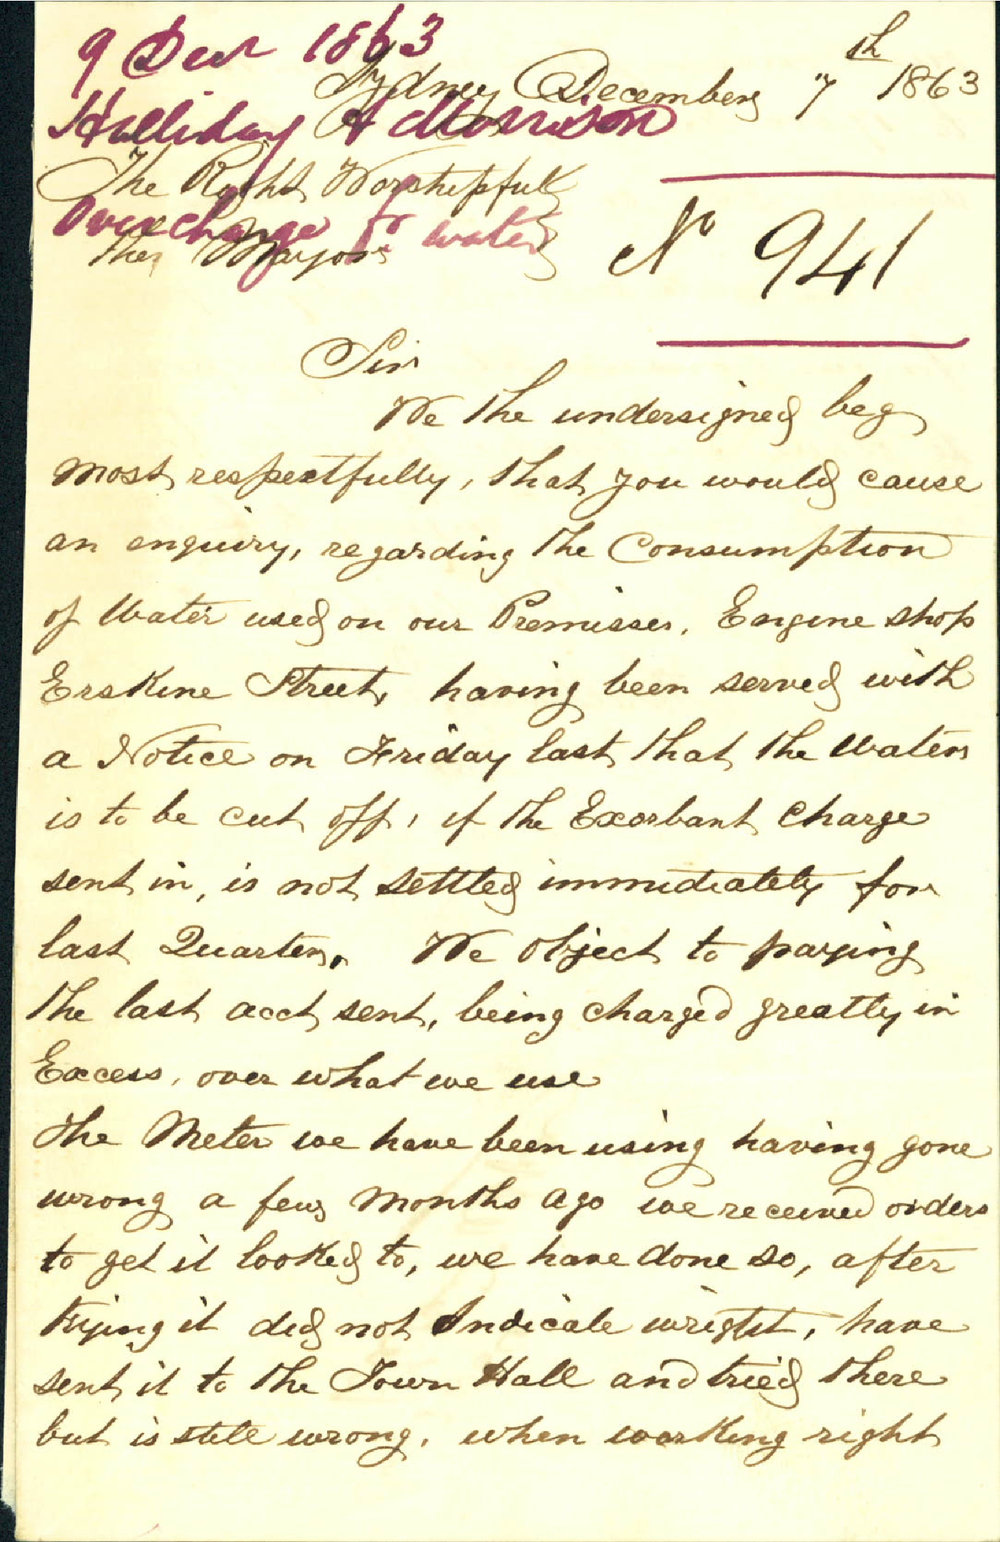 9 Decr 1863
Sydney December 7th 1863
Halliday & Morrison
The Right Worshipfull
Overcharge for water
The Mayor
No 941
Sir
We the undersigned beg
most respectfully, that you would cause
an enquiry, regarding the Consumption
of Water used on our Premisses, Engine shop
Erskine Street, having been served with
a Notice on Friday last that the Water
is to be cut off, if the Exorbant Charge
sent in, is not settled immidiately for
last Quarter. We object to paying
the last acct sent, being charged greatly in
Excess, over what we use
the Meter we have been using having gone
wrong a few months ago we received orders
to get it looked to, we have done so, after
trying it did not Indicate wright, have
sent it to the Town Hall and tried there
but is still wrong, when working right